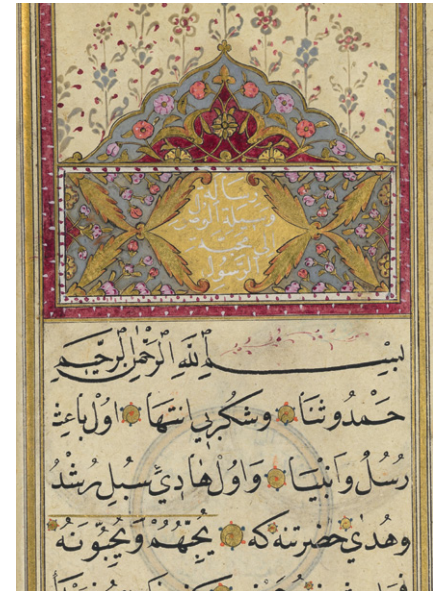 رسالة
وسيلة الوصول
الى نجم
الرسول
بسم الله الرحمن الرحيم
حمد و ثنا و شكر بى انتها اول باعث
رسل و انبيا و اول هادئ سبل رشد
و هدى حضرتنه كه يحبهم و يحبونه